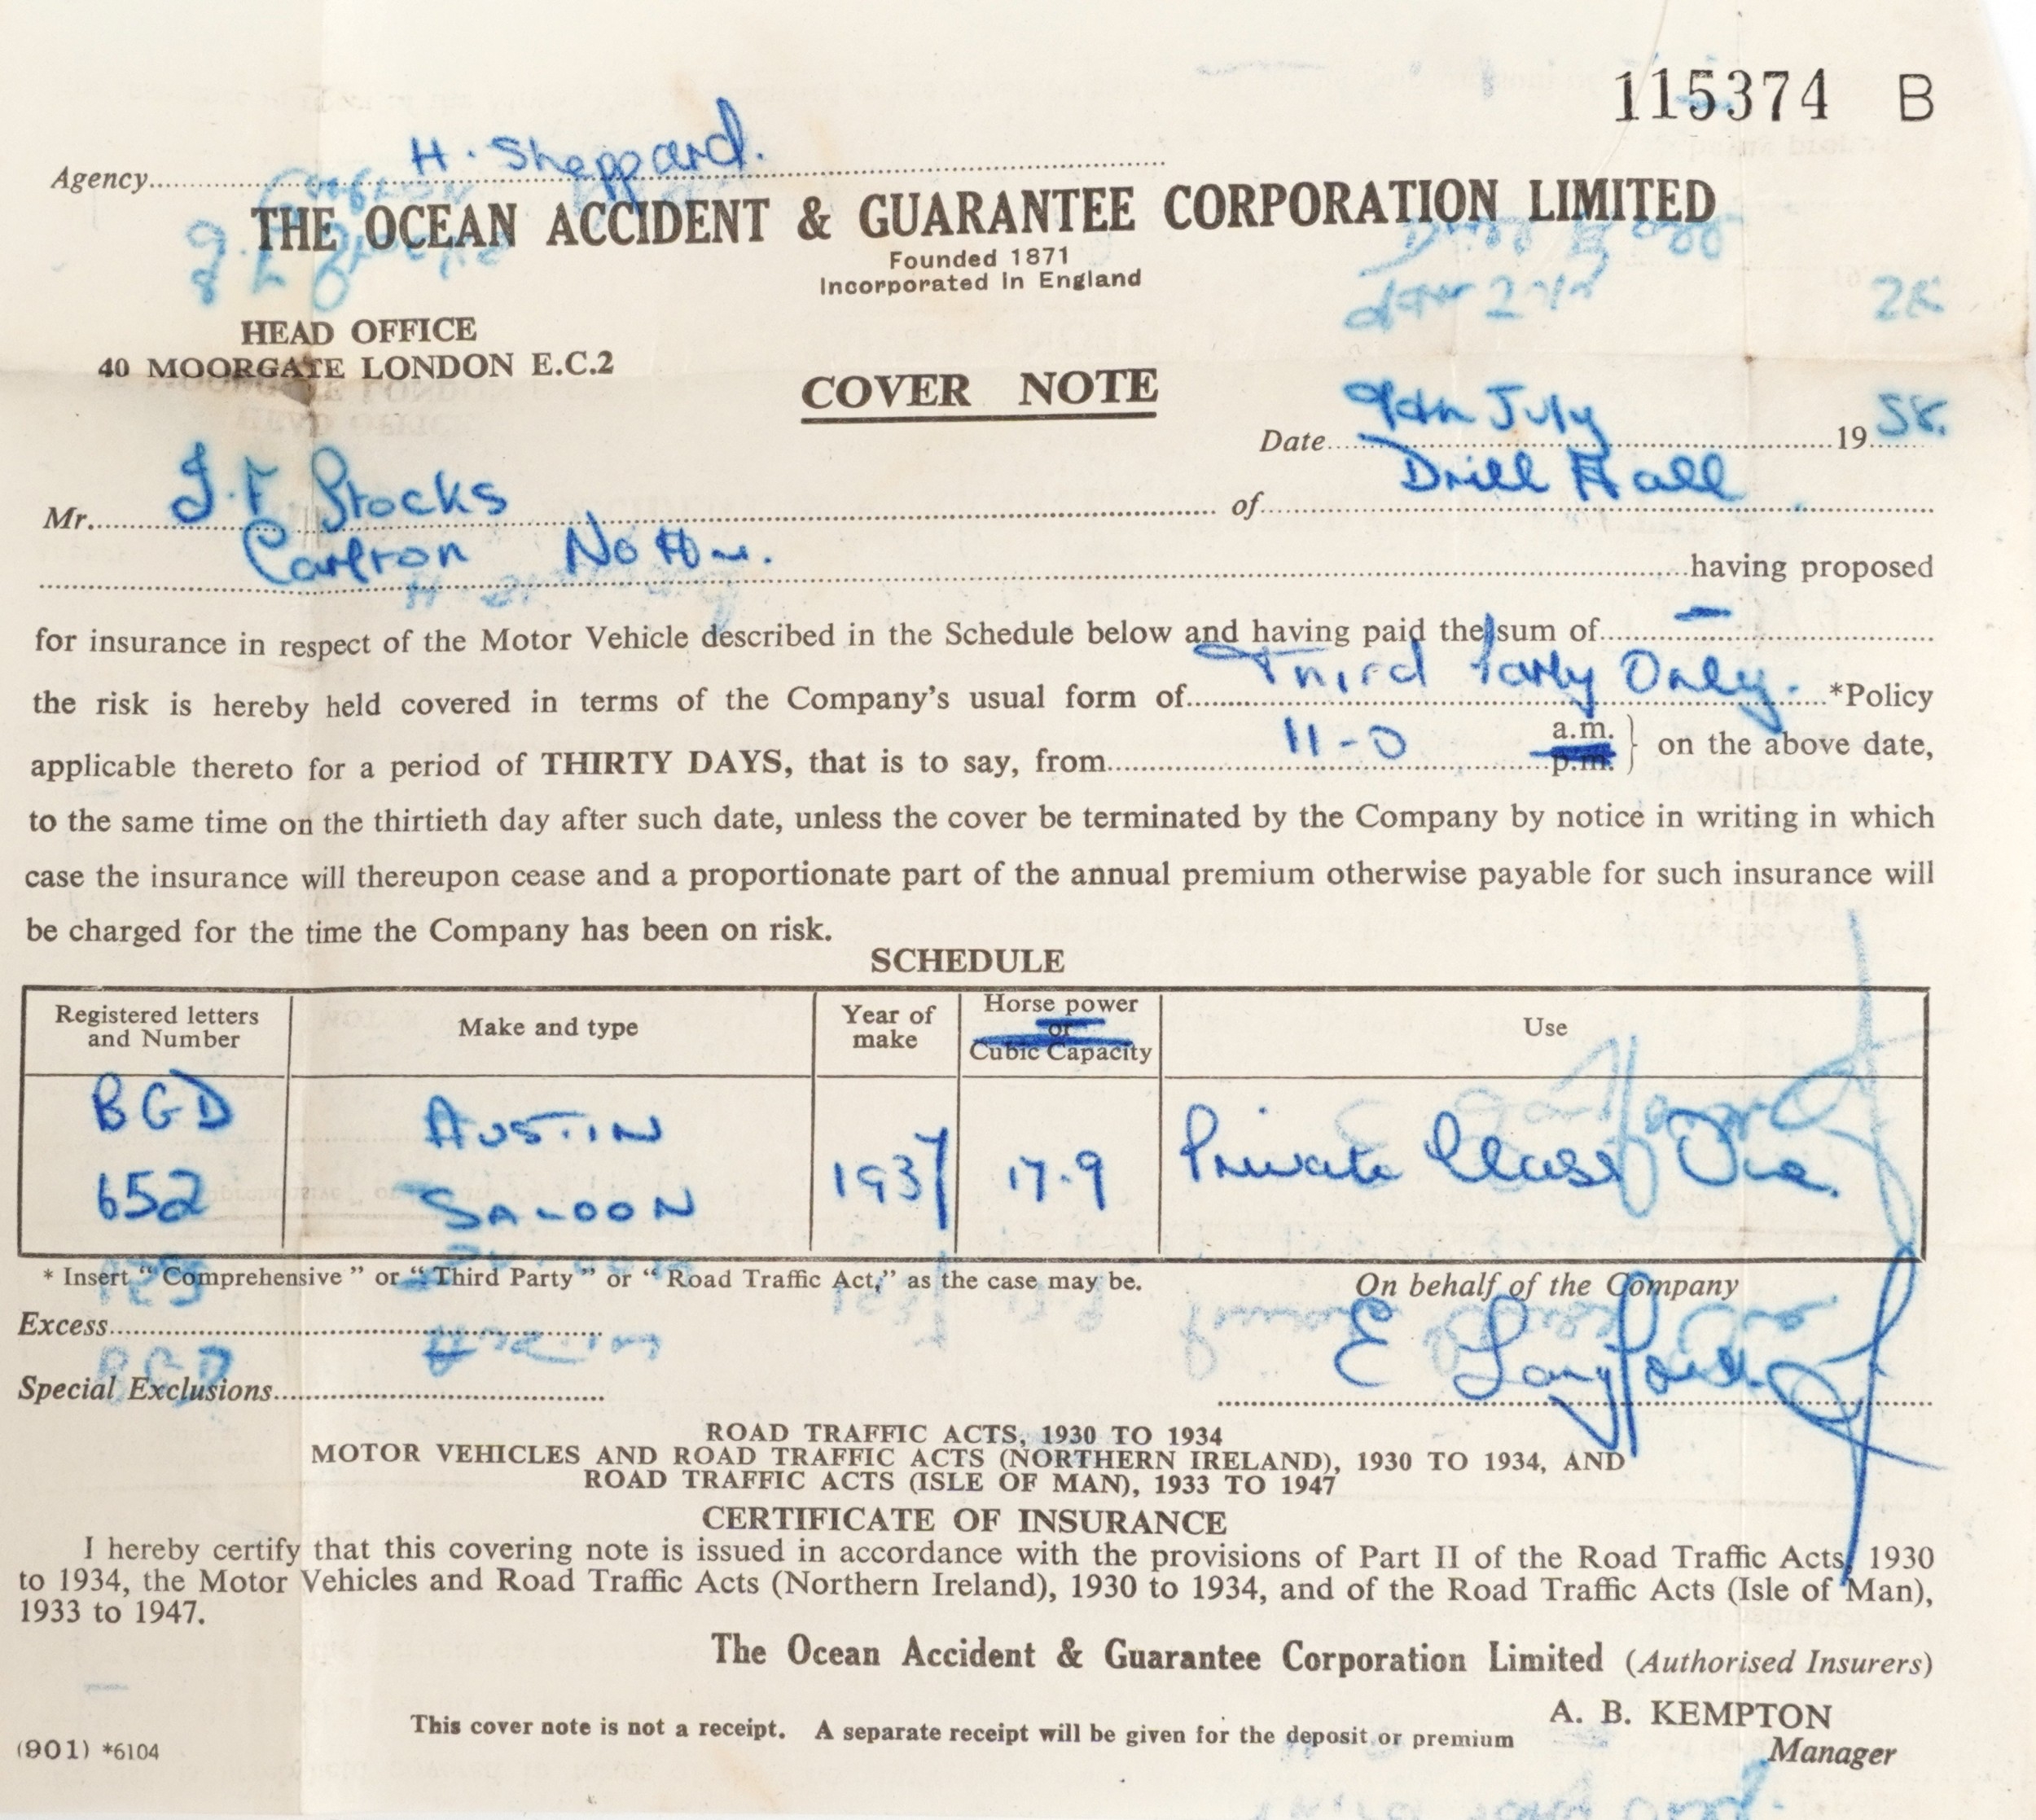 115374 B
Agency H. Sheppard.
THE OCEAN ACCIDENT & GUARANTEE CORPORATION LIMITED
Founded 1871
Incorporated in England
HEAD OFFICE
40 MOORGATE LONDON E.C.2
COVER NOTE
Date 9th July 1958.
Mr. J.F Stocks of Drill Hall
Carlton Notts. having proposed
for insurance in respect of the Motor Vehicle described in the Schedule below and having paid the sum of —
the risk is hereby held covered in terms of the Company's usual form of Third Party Only. *Policy
applicable thereto for a period of THIRTY DAYS, that is to say, from 11-0 a.m. p.m. } on the above date,
to the same time on the thirtieth day after such date, unless the cover be terminated by the Company by notice in writing in which
case the insurance will thereupon cease and a proportionate part of the annual premium otherwise payable for such insurance will
be charged for the time the Company has been on risk.
SCHEDULE
Registered letters and Number
Make and type
Year of make
Horse power or Cubic Capacity
Use
BGD 652
AUSTIN SALOON
1937
17.9
Private Class One.
* Insert "Comprehensive" or "Third Party" or "Road Traffic Act," as the case may be.
On behalf of the Company
Excess
E Langford
Special Exclusions
ROAD TRAFFIC ACTS, 1930 TO 1934
MOTOR VEHICLES AND ROAD TRAFFIC ACTS (NORTHERN IRELAND), 1930 TO 1934, AND
ROAD TRAFFIC ACTS (ISLE OF MAN), 1933 TO 1947
CERTIFICATE OF INSURANCE
I hereby certify that this covering note is issued in accordance with the provisions of Part II of the Road Traffic Acts, 1930
to 1934, the Motor Vehicles and Road Traffic Acts (Northern Ireland), 1930 to 1934, and of the Road Traffic Acts (Isle of Man),
1933 to 1947.
The Ocean Accident & Guarantee Corporation Limited (Authorised Insurers)
A. B. KEMPTON
This cover note is not a receipt. A separate receipt will be given for the deposit or premium
Manager
(901) *6104